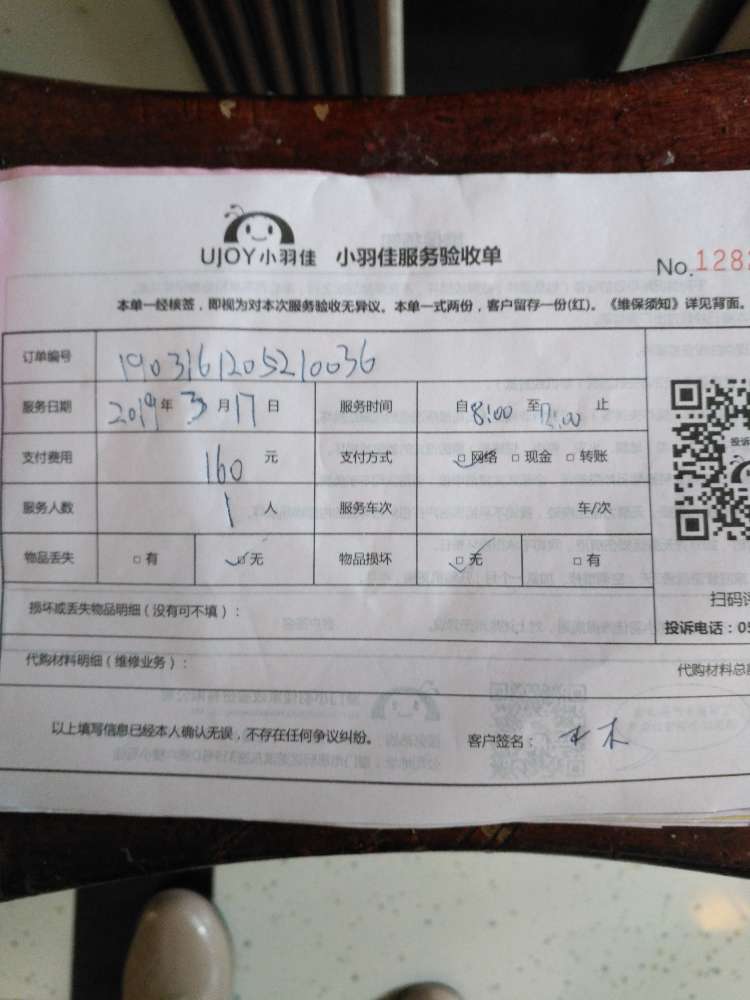 UJOY小羽佳 小羽佳服务验收单
No.1282
本单一经核签，即视为对本次服务验收无异议。本单一式两份，客户留存一份(红)。《维保须知》详见背面。
订单编号 1903161205210036
服务日期 2019年 3月17日 服务时间 自8:00至12:00止
支付费用 160元 支付方式 □网络 □现金 □转账
服务人数 1人 服务车次 车/次
物品丢失 □有 □无 物品损坏 □无 □有
投诉
扫码评
损坏或丢失物品明细（没有可不填）：
投诉电话：05
代购材料明细（维修业务）：
代购材料总
以上填写信息已经本人确认无误，不存在任何争议纠纷。 客户签名：